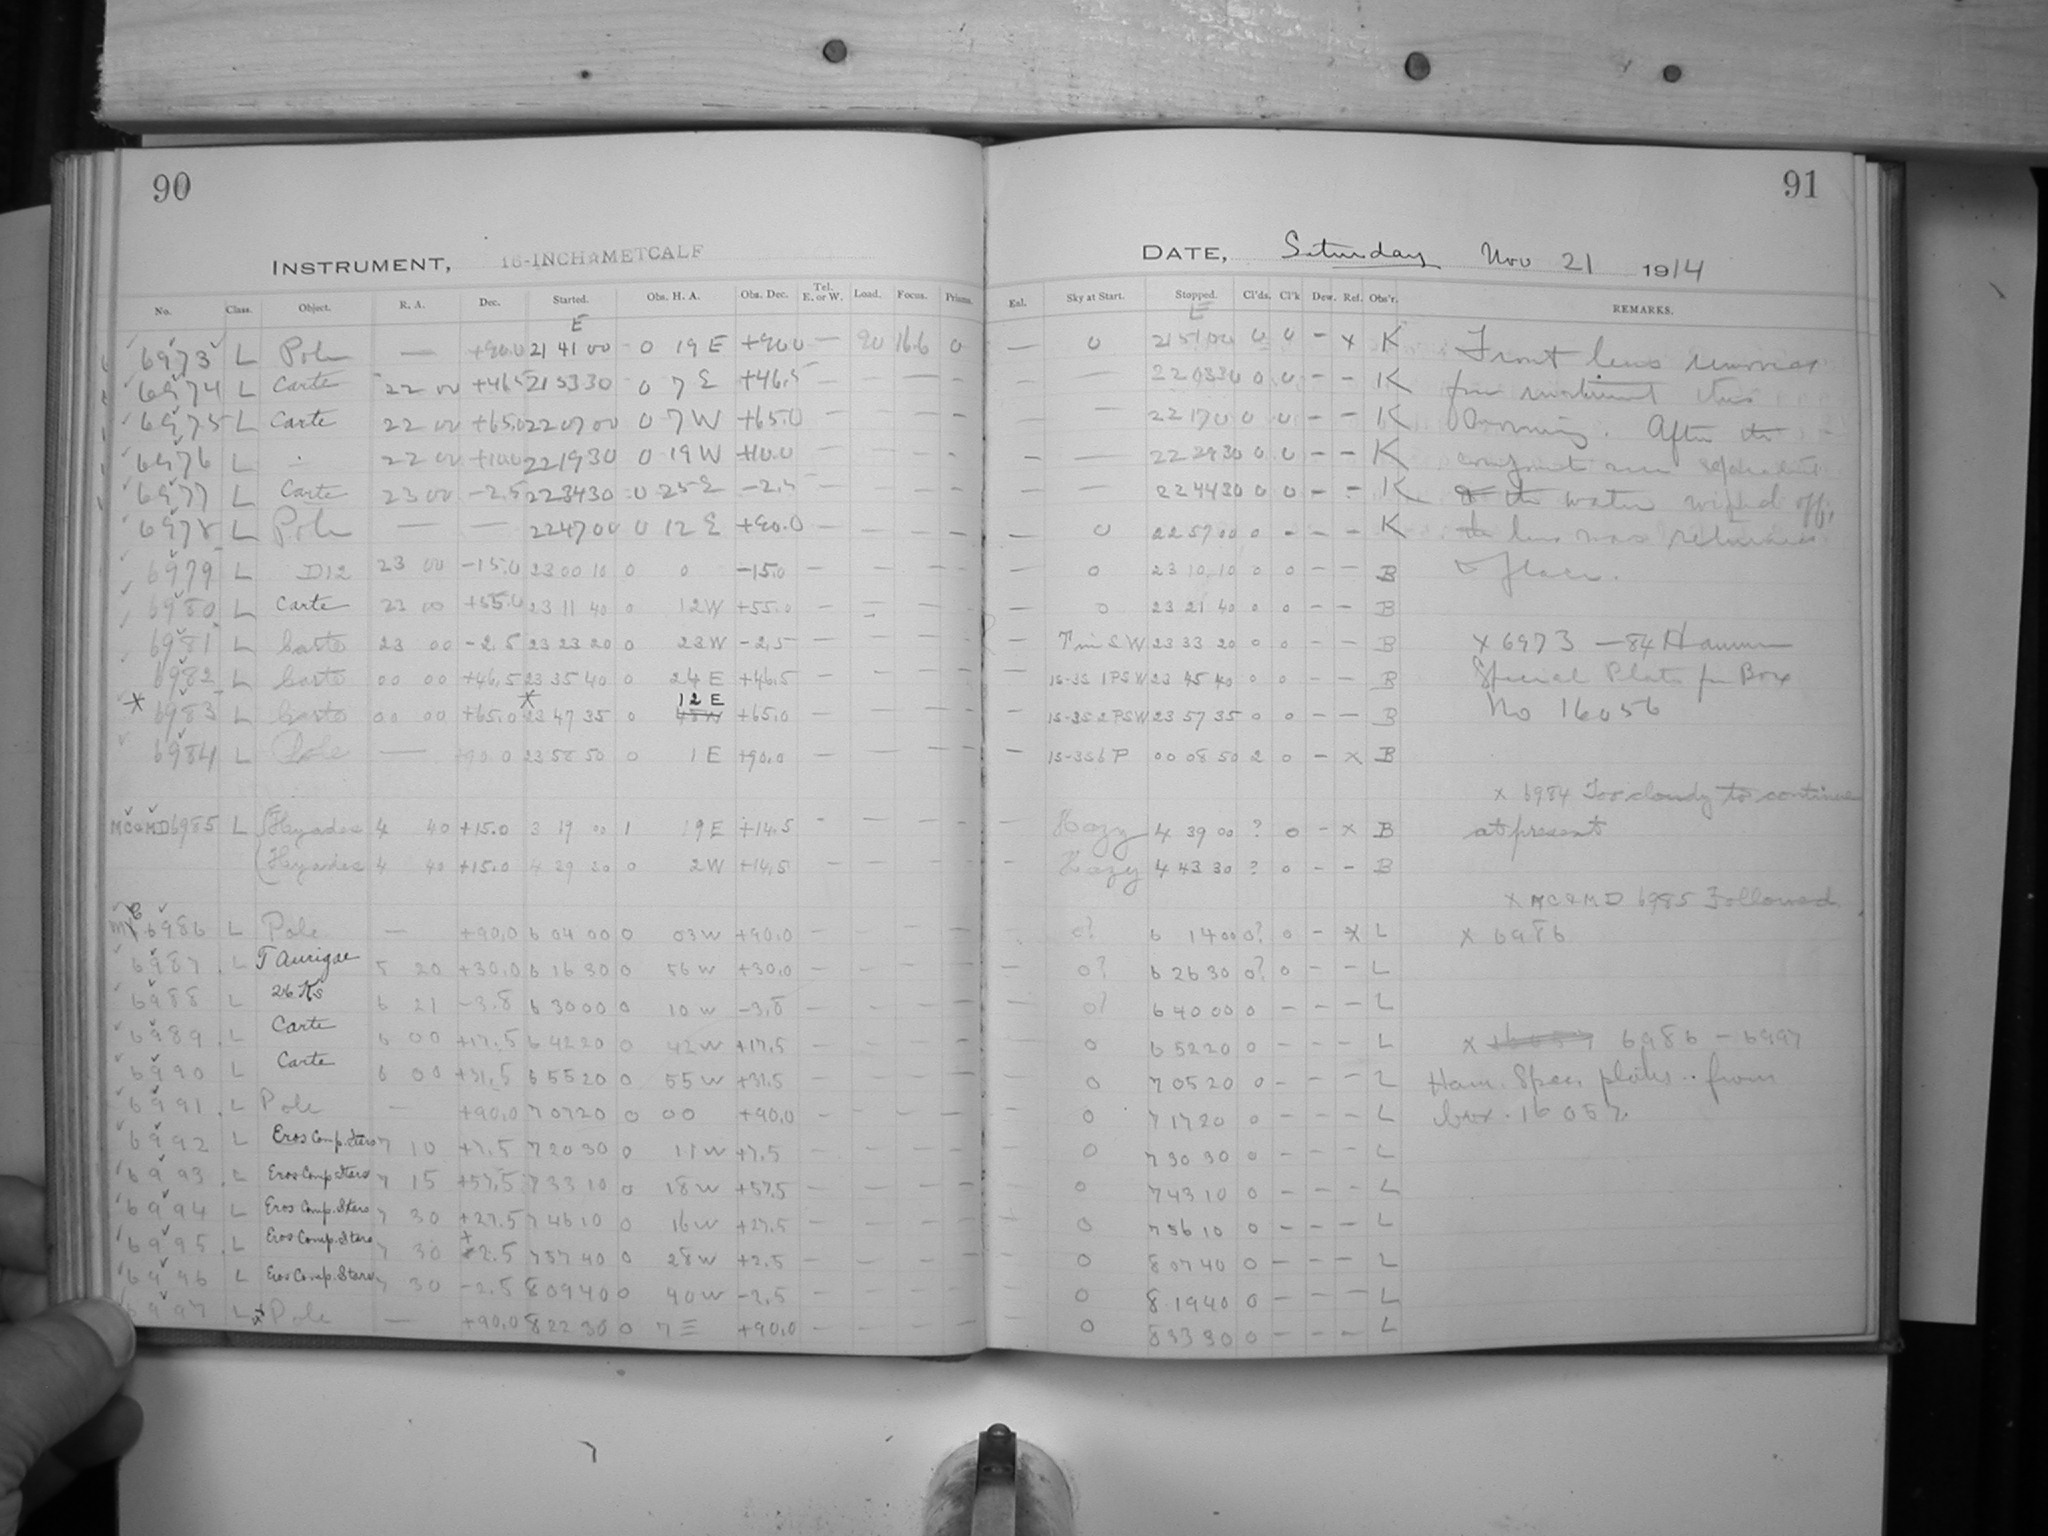 90
INSTRUMENT, 16-INCH METCALF
No. Class. Object. R. A. Dec. Started. Obs. H. A. Obs. Dec. Tel. E. or W. Load. Focus. Prisms.
E
6973 L Pole — +90.0 21 41 00 0 19 E +90.0 — 90 16.6 0
6974 L Carte 22 00 +46.5 21 53 30 0 7 E +46.5 — — — —
6975 L Carte 22 00 +65.0 22 07 00 0 7 W +65.0 — — — —
6976 L 22 00 +10.0 22 19 30 0 19 W +10.0 — — — —
6977 L Carte 23 00 -2.5 22 34 30 0 25 E -2.5 — — — —
6978 L Pole — — 22 47 00 0 12 E +90.0 — — — —
6979 L D12 23 00 -15.0 23 00 10 0 0 -15.0 — — — —
6980 L Carte 23 00 +55.0 23 11 40 0 12 W +55.0 — — — —
6981 L Carte 23 00 -2.5 23 23 20 0 23 W -2.5 — — — —
6982 L Carte 00 00 +46.5 23 35 40 0 24 E +46.5 — — — —
* 6983 L Carte 00 00 +65.0 * 23 47 35 0 12 E +65.0 — — — —
6984 L Pole — +90.0 23 58 50 0 1 E +90.0 — — — —
MC&MD 6985 L Hyades 4 40 +15.0 3 19 00 1 19 E +14.5 — — — —
Hyades 4 40 +15.0 4 29 30 0 2 W +14.5 — — — —
MC 6986 L Pole — +90.0 6 04 00 0 03 W +90.0 — — — —
6987 L T Aurigae 5 20 +30.0 6 16 30 0 56 W +30.0 — — — —
6988 L 26 Ks 6 21 -3.8 6 30 00 0 10 W -3.8 — — — —
6989 L Carte 6 00 +17.5 6 42 20 0 42 W +17.5 — — — —
6990 L Carte 6 00 +31.5 6 55 20 0 55 W +31.5 — — — —
6991 L Pole — +90.0 7 07 20 0 00 +90.0 — — — —
6992 L Eros Comp. Stars 7 10 +7.5 7 20 30 0 11 W +7.5 — — — —
6993 L Eros Comp Stars 7 15 +57.5 7 33 10 0 18 W +57.5 — — — —
6994 L Eros Comp. Stars 7 30 +27.5 7 46 10 0 16 W +27.5 — — — —
6995 L Eros Comp. Stars 7 30 +2.5 7 57 40 0 28 W +2.5 — — — —
6996 L Eros Comp. Stars 7 30 -2.5 8 09 40 0 40 W -2.5 — — — —
6997 L Pole — +90.0 8 22 30 0 7 E +90.0 — — — —
91
DATE, Saturday Nov 21 1914
Enl. Sky at Start. Stopped. Cl'ds. Cl'k Dew. Ref. Obs'r. REMARKS.
E
— 0 21 51 00 0 0 - x K Front lens removed
— — 22 03 30 0 0 - - K from instrument this
— — 22 17 00 0 0 - - K morning. After the
— — 22 29 30 0 0 - - K
— — 22 44 30 0 0 - - K water wiped off,
— 0 22 57 00 0 - - - K the lens was returned
— 0 23 10 10 0 0 - - B to place.
— 0 23 21 40 0 0 - - B
— 7 m S W 23 33 20 0 0 - - B x 6973 - 84 Hammer
— 1s-3s 1 P S W 23 45 40 0 0 - - B Special Plate from Box
— 1s-3s 2 P S W 23 57 35 0 0 - - B No 16056
— 1s-3s 6 P 00 08 50 2 0 - x B
x 6984 Too cloudy to continue
— Hazy 4 39 00 ? 0 - x B at present
— Hazy 4 43 30 ? 0 - - B
x MC&MD 6985 Followed
— 0? 6 14 00 0? 0 - x L x 6986
— 0? 6 26 30 0? 0 - - L
— 0? 6 40 00 0 - - - L
— 0 6 52 20 0 - - - L x 6986 - 6997
— 0 7 05 20 0 - - - L Ham. Spec. plates from
— 0 7 17 20 0 - - - L box. 16057
— 0 7 30 30 0 - - - L
— 0 7 43 10 0 - - - L
— 0 7 56 10 0 - - - L
0 8 07 40 0 - - - L
0 8 19 40 0 - - - L
0 8 33 30 0 - - - L